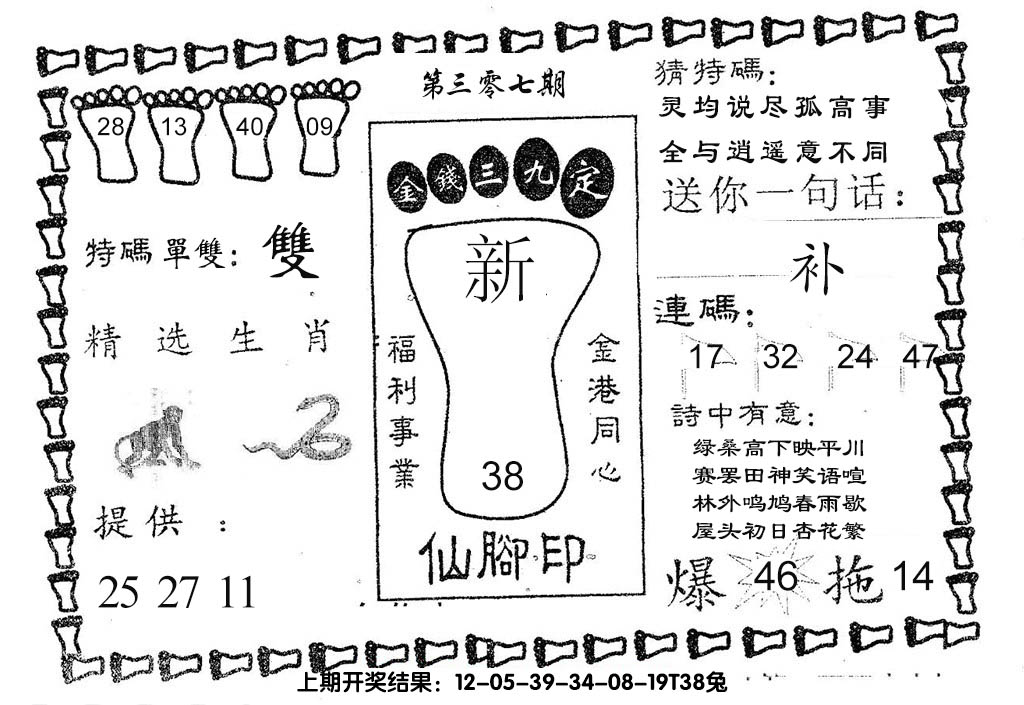 第三零七期
28 13 40 09
特碼單雙：雙
精选生肖
提供：
25 27 11
金錢三九定
新
福利事業
金港同心
38
仙腳印
猜特碼：
灵均说尽孤高事
全与逍遥意不同
送你一句话：
补
連碼：
17 32 24 47
詩中有意：
绿桑高下映平川
赛罢田神笑语喧
林外鸣鸠春雨歇
屋头初日杏花繁
爆 46 拖 14
上期开奖结果：12-05-39-34-08-19T38兔